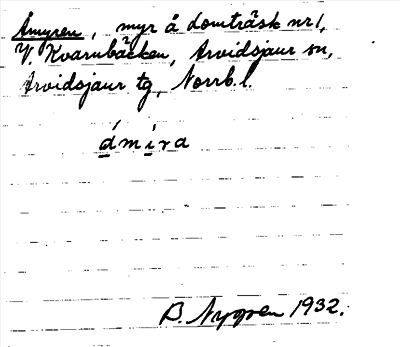 Åmyren, myr å Domträsk nr 1,
V. Kvarnbäcken, Arvidsjaur sn,
Arvidsjaur tg, Norrb. l.
ámíra
B. Nygren 1932.